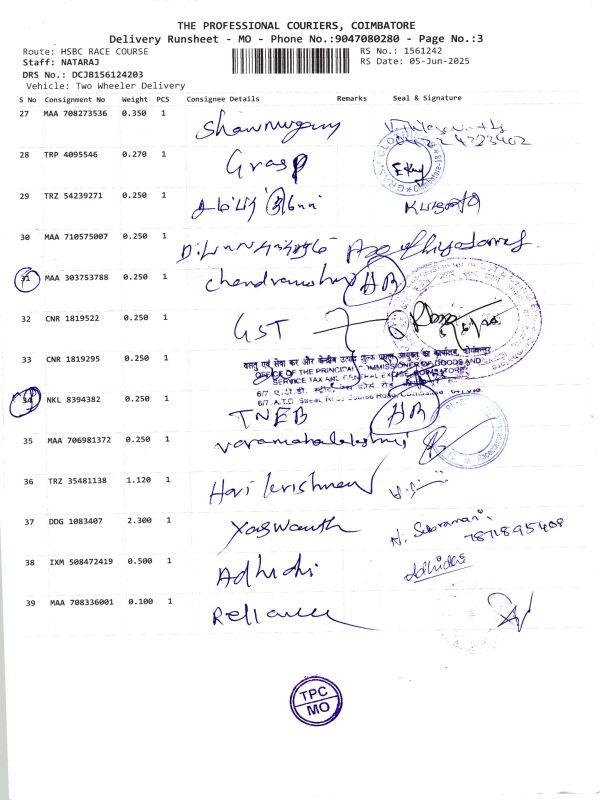 THE PROFESSIONAL COURIERS, COIMBATORE
Delivery Runsheet - MO - Phone No.:9047080280 - Page No.:3
Route: HSBC RACE COURSE
RS No.: 1561242
Staff: NATARAJ
RS Date: 05-Jun-2025
DRS No.: DCJB156124203
Vehicle: Two Wheeler Delivery
S No Consignment No Weight PCS Consignee Details Remarks Seal & Signature
27 MAA 708273536 0.350 1
28 TRP 4095546 0.270 1 Grasp
29 TRZ 54239271 0.250 1
30 MAA 710575007 0.250 1
31 MAA 303753788 0.250 1 HB
32 CNR 1819522 0.250 1 GST
33 CNR 1819295 0.250 1
OFFICE OF THE PRINCIPAL COMMISSIONER OF GOODS AND
SERVICE TAX AND CENTRAL EXCISE, COIMBATORE
34 NKL 8394382 0.250 1 TNEB HB
35 MAA 706981372 0.250 1 varamahalakshmi
36 TRZ 35481138 1.120 1 Hari krishnan
37 DDG 1083407 2.300 1 Yaswanth N. Subramani
7871895408
38 IXM 508472419 0.500 1 Adhidhi
39 MAA 708336001 0.100 1 Reliance
TPC
MO